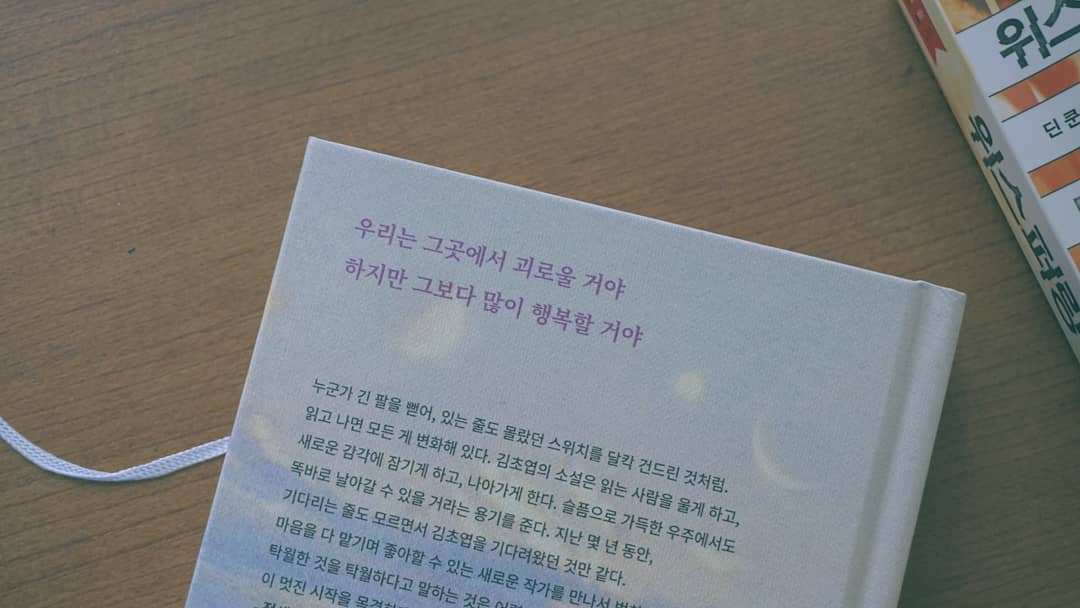 우리는 그곳에서 괴로울 거야
하지만 그보다 많이 행복할 거야
누군가 긴 팔을 뻗어, 있는 줄도 몰랐던 스위치를 달칵 건드린 것처럼.
읽고 나면 모든 게 변화해 있다. 김초엽의 소설은 읽는 사람을 울게 하고,
새로운 감각에 잠기게 하고, 나아가게 한다. 슬픔으로 가득한 우주에서도
똑바로 날아갈 수 있을 거라는 용기를 준다. 지난 몇 년 동안,
기다리는 줄도 모르면서 김초엽을 기다려왔던 것만 같다.
마음을 다 맡기며 좋아할 수 있는 새로운 작가를 만나서
탁월한 것을 탁월하다고 말하는 것은
이 멋진 시작을
딘 쿤
위스퍼링